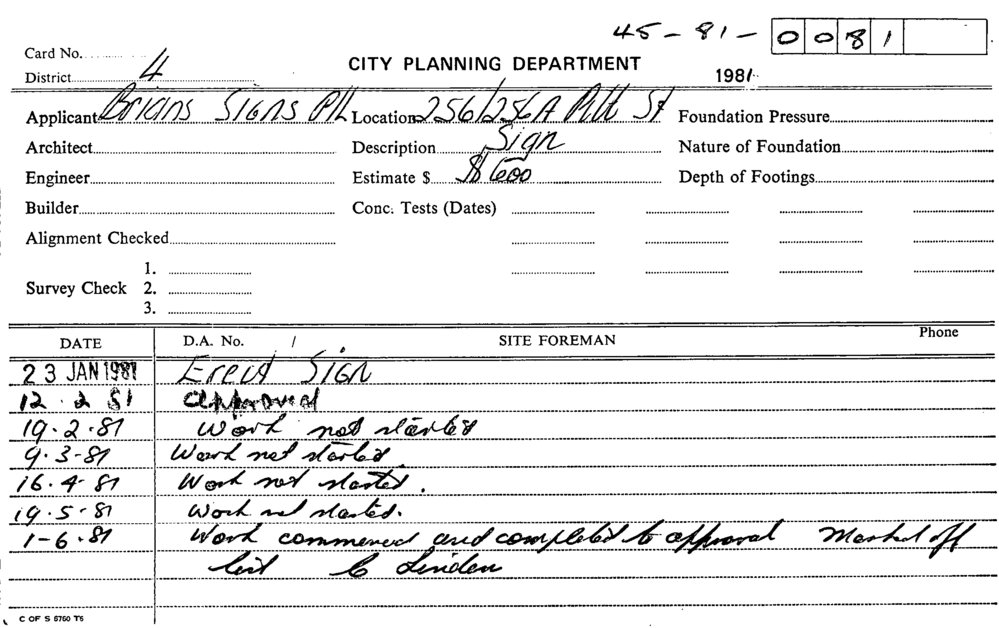 45-81-0081
Card No.
District 4
CITY PLANNING DEPARTMENT
1981
Applicant Brians Signs P/L Location 256/256A Pitt St Foundation Pressure
Architect Description Sign Nature of Foundation
Engineer Estimate $ $600 Depth of Footings
Builder Conc. Tests (Dates)
Alignment Checked
1.
Survey Check 2.
3.
DATE D.A. No. / SITE FOREMAN Phone
23 JAN 1981 Erect Sign
12.2.81 approved
19.2.81 Work not started
9.3.81 Work not started
16.4.81 Work not started.
19.5.81 Work not started.
1-6.81 Work commenced and completed to approval Marked off
list C Linden
C OF S 6760 T6